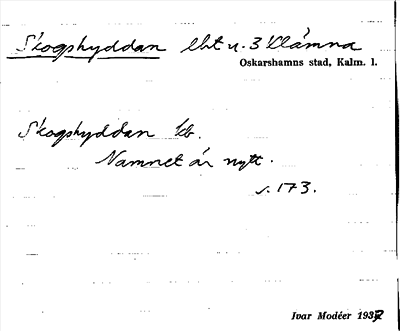 Skogshyddan lht u. 3 Klämna
Oskarshamns stad, Kalm. l.
Skogshyddan kb.
Namnet är nytt.
s. 173.
Ivar Modéer 1937